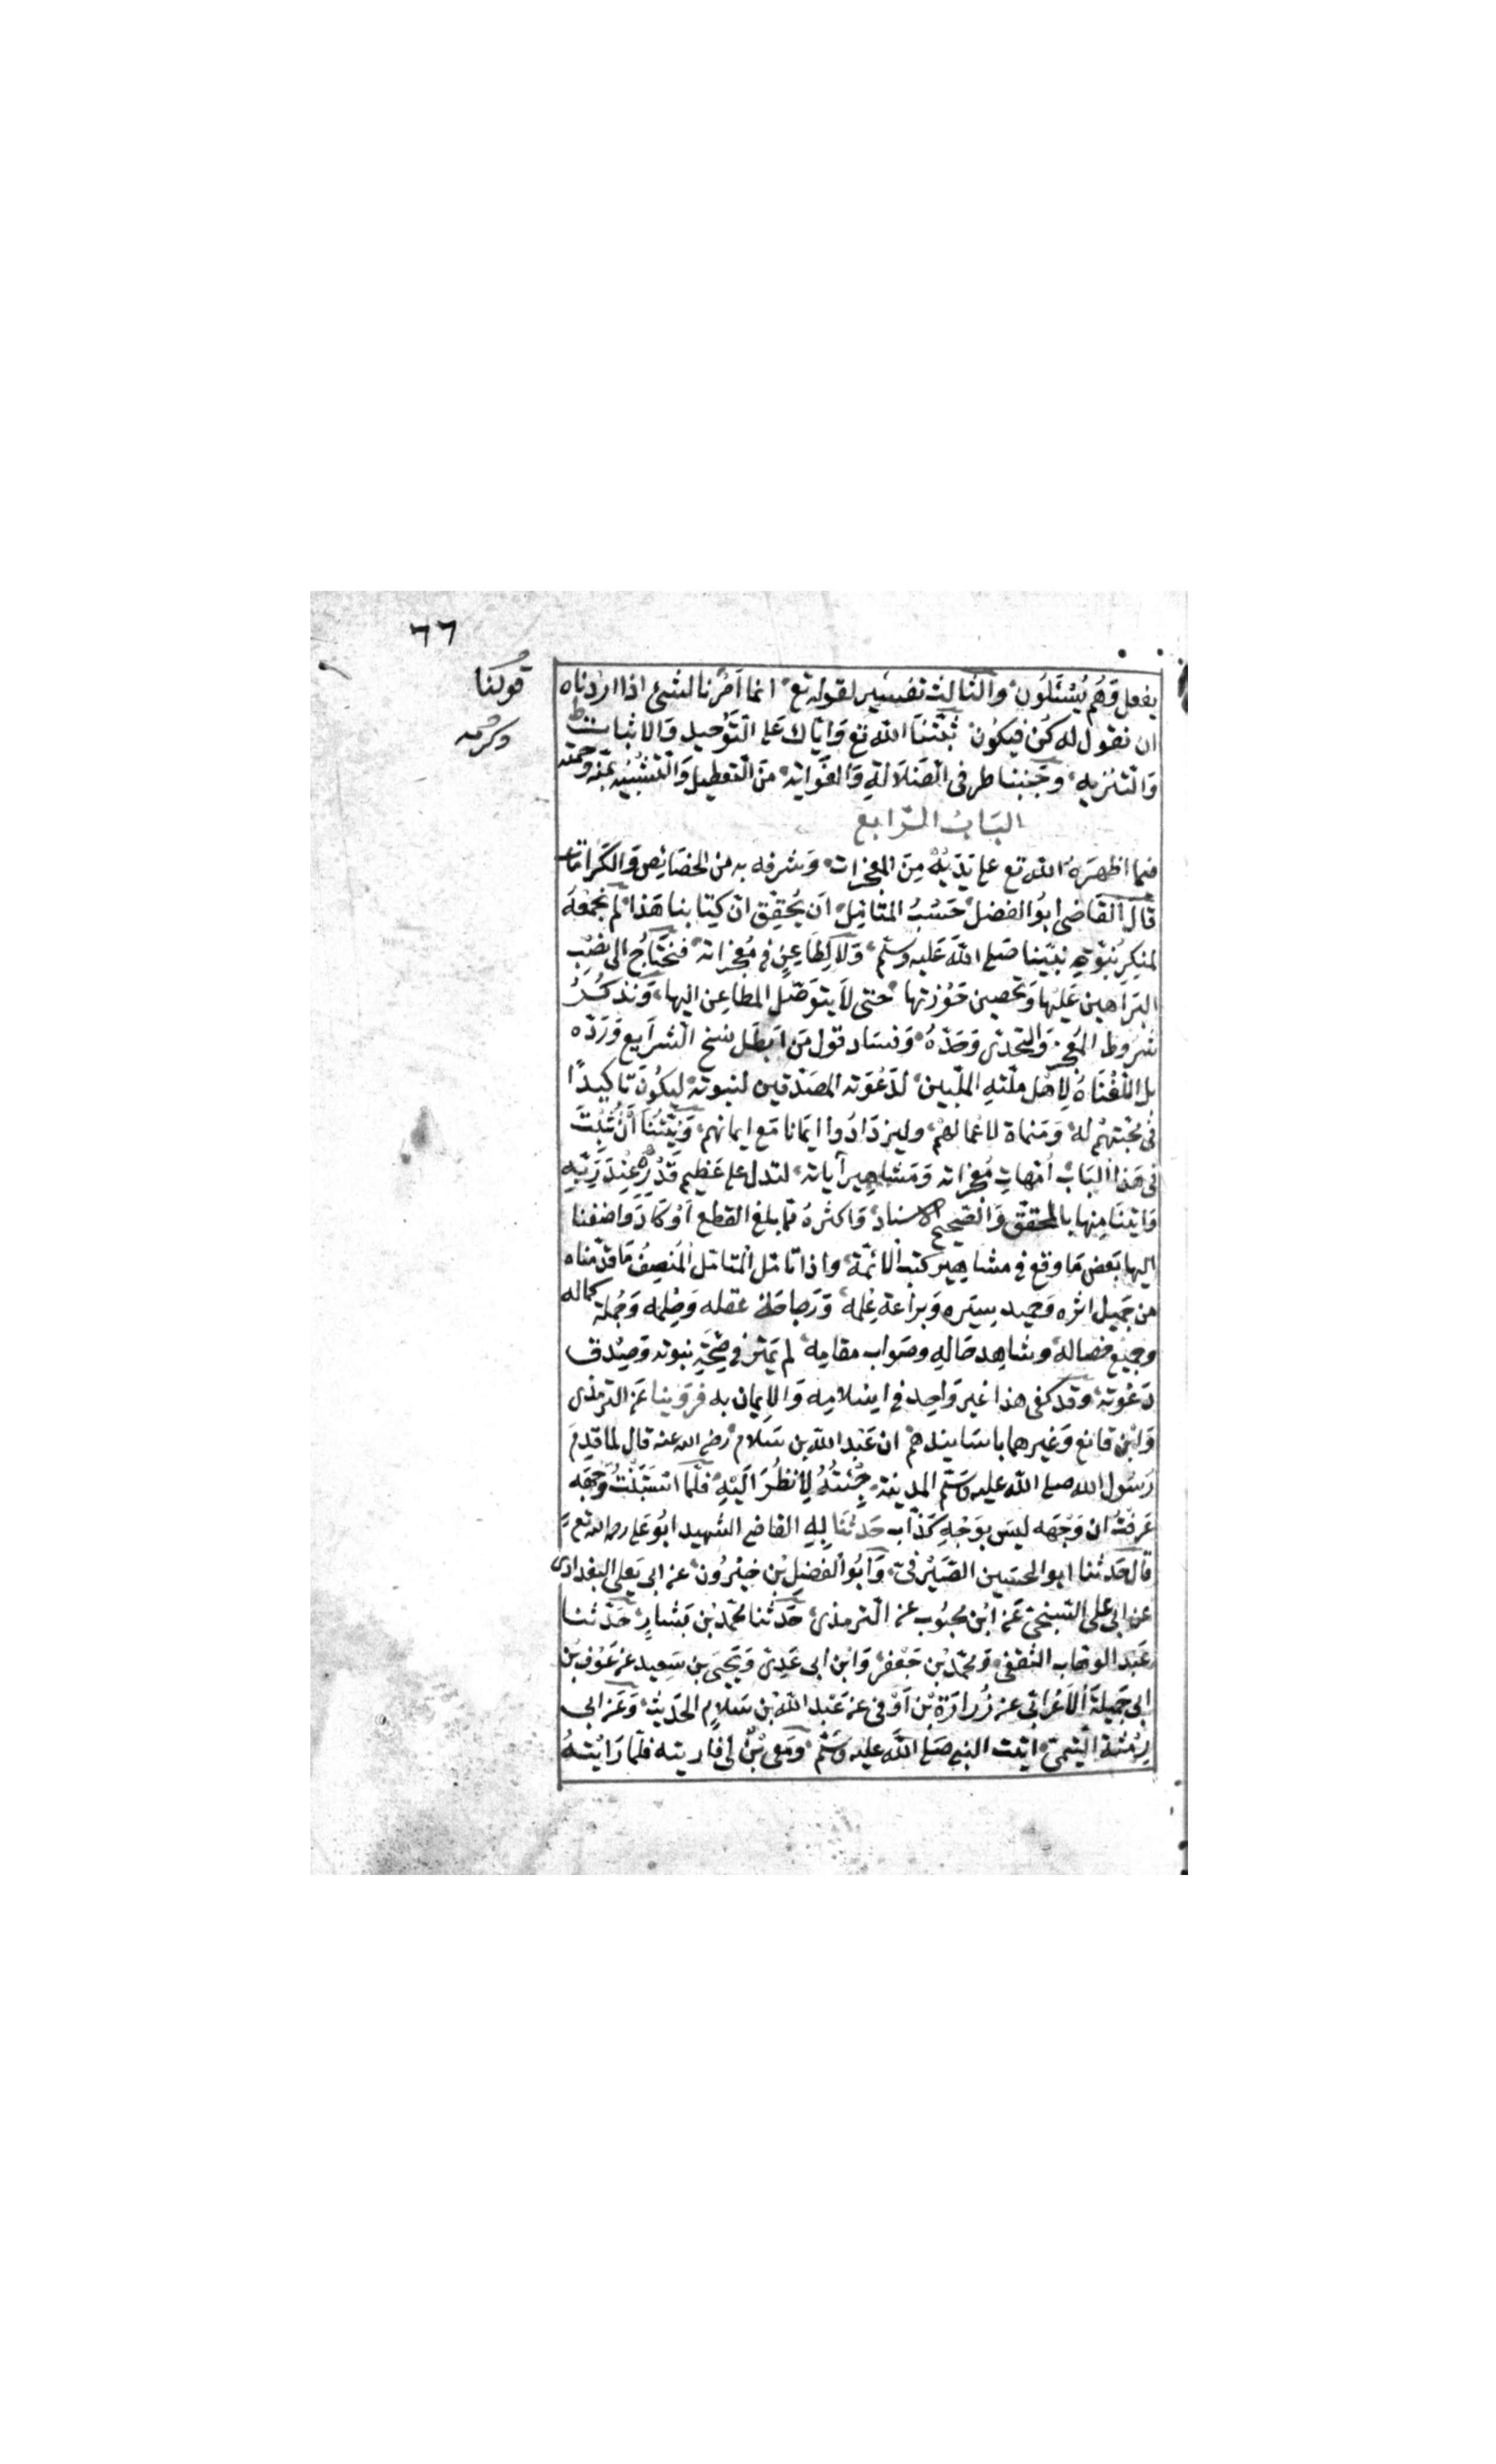 ٦٦
يفعل وَهُم يُسْئَلُونَ والثالث تفسير لقوله تع انما اَمْرُنا لشئ اذا اردناه
قولنا
ان نقول له كُن فيكُون ثَبَّتَنَا الله تع وَايّاك عَلى التَّوْحيد وَالاثبات
وَالتنزيهِ وجَنبنا طرفى الضلَالةِ وَالغَوَاية منَ التعطيل وَالتشبيه بمنّه ورحمته
البَابُ الرَّابع
فيما اظهرَهُ الله تع على يَدَيْهِ مِنَ المعجزات وَشرفه به من الخصَائِص وَالكَرامَات
قال القَاضى ابوُ الفضل حَسْبُ المتأمِّل اَن يُحقِّق انّ كِتَابنا هَذا لم نجمعهُ
لمنكِرِ نُبَوَّةِ نَبيّنا صَلى الله عَليه وسَلّم وَلا لِطَاعِنٍ فى مُعجزاته فنحتَاجُ الى نَصْبِ
البَرَاهين عَلَيْها وَتحصين حَوْزتها حتى لَا يتوَصّل المطاعِن اليها وَنذكُرُ
شرُوط المُعجز وَالتحَدّى وَحَدّهُ وَفسَاد قول مَن اَبطَل نسخ الشرَايع وَرَدّه
بل الّفْنَاهُ لِاَهْل مِلّتهِ الملَبّينَ لدَعْوَته المصَدّقين لنبوته ليكُونَ تاكيدًا
فى مَحبَّتهِمْ له وَمَنماة لاعْمالهمْ وليزدَادُوا ايمَانا مَع ايمانهم وَنِيَّتُنَا اَنْ نُثْبِتَ
فى هَذا البَاب اُمّهَات مُعجزاته وَمَشاهِير آيَاته لتدل على عَظيم قَدْرِهِ عِنْدَ رَبِّهِ
وَاتينَا مِنها بالمحقق وَالصَّحيح الاسناد وَاكثرهُ مما بلغ القطع اَوْ كادَ وَاضفنا
اليها بَعض مَا وقع فى مشاهِير كتب الائمّة وَاذا تأمّل المتامّل المُنصِفُ مَا قدّمناه
من جَميل اثره وَحميد سِيَره وَبرَاعَة عِلمه وَرَجاحَة عَقله وَحِلمه وَجُملة كماله
وجميع خصاله وشاهِد حَالهِ وصَواب مقاله لم يَمْتَرِ فى صِحَّةِ نبوته وَصِدق
دَعْوَته وَقَد كفى هذا غير وَاحِد فى اِسْلامِه وَالِايمان به فرَوَينا عَن الترمذى
وَابْن قانِع وَغيرهما باسَانيدهمْ ان عَبْد الله بن سَلام رضى الله عنه قال لما قدِمَ
رَسُول الله صلى الله عليه وَسَلّم المدينة جِئتُهُ لِاَنظُرَ اِلَيْهِ فلَمّا اسْتَبَنْتُ وَجْهَه
عَرفْتُ اَن وَجْهَه ليسَ بوَجْهِ كَذّاب حَدثنَا بِهِ القاضى الشهيد ابُو عَلى رحمه الله تع
قال حَدثنا ابو الحسَين الصّيْرفىّ وَابُو الفضلِ بْن خيْرُون عن ابى يَعلى البَغدادى
عن ابى على السِّنجىّ عَن ابْن محبُوب عن الترمذى حَدّثنا محمّد بْن بَشار حَدّثنا
عَبْد الوهّاب الثقفى وَمحمّد بْن جَعْفر وَابن ابى عَدِىّ وَيَحيى بن سَعيد عن عَوْف بْن
ابى جَميلَة الاَعْرابى عن زُرارَةَ بْن اَوْفى عن عَبْد الله بن سَلام الحَديث وَعَن ابى
رِمْثة التيمىّ اتيت النبى صَلى الله عليه وَسَلّم ومَعى ابْنٌ لى فاُرِيته فلمّا رَاَيْتهُ